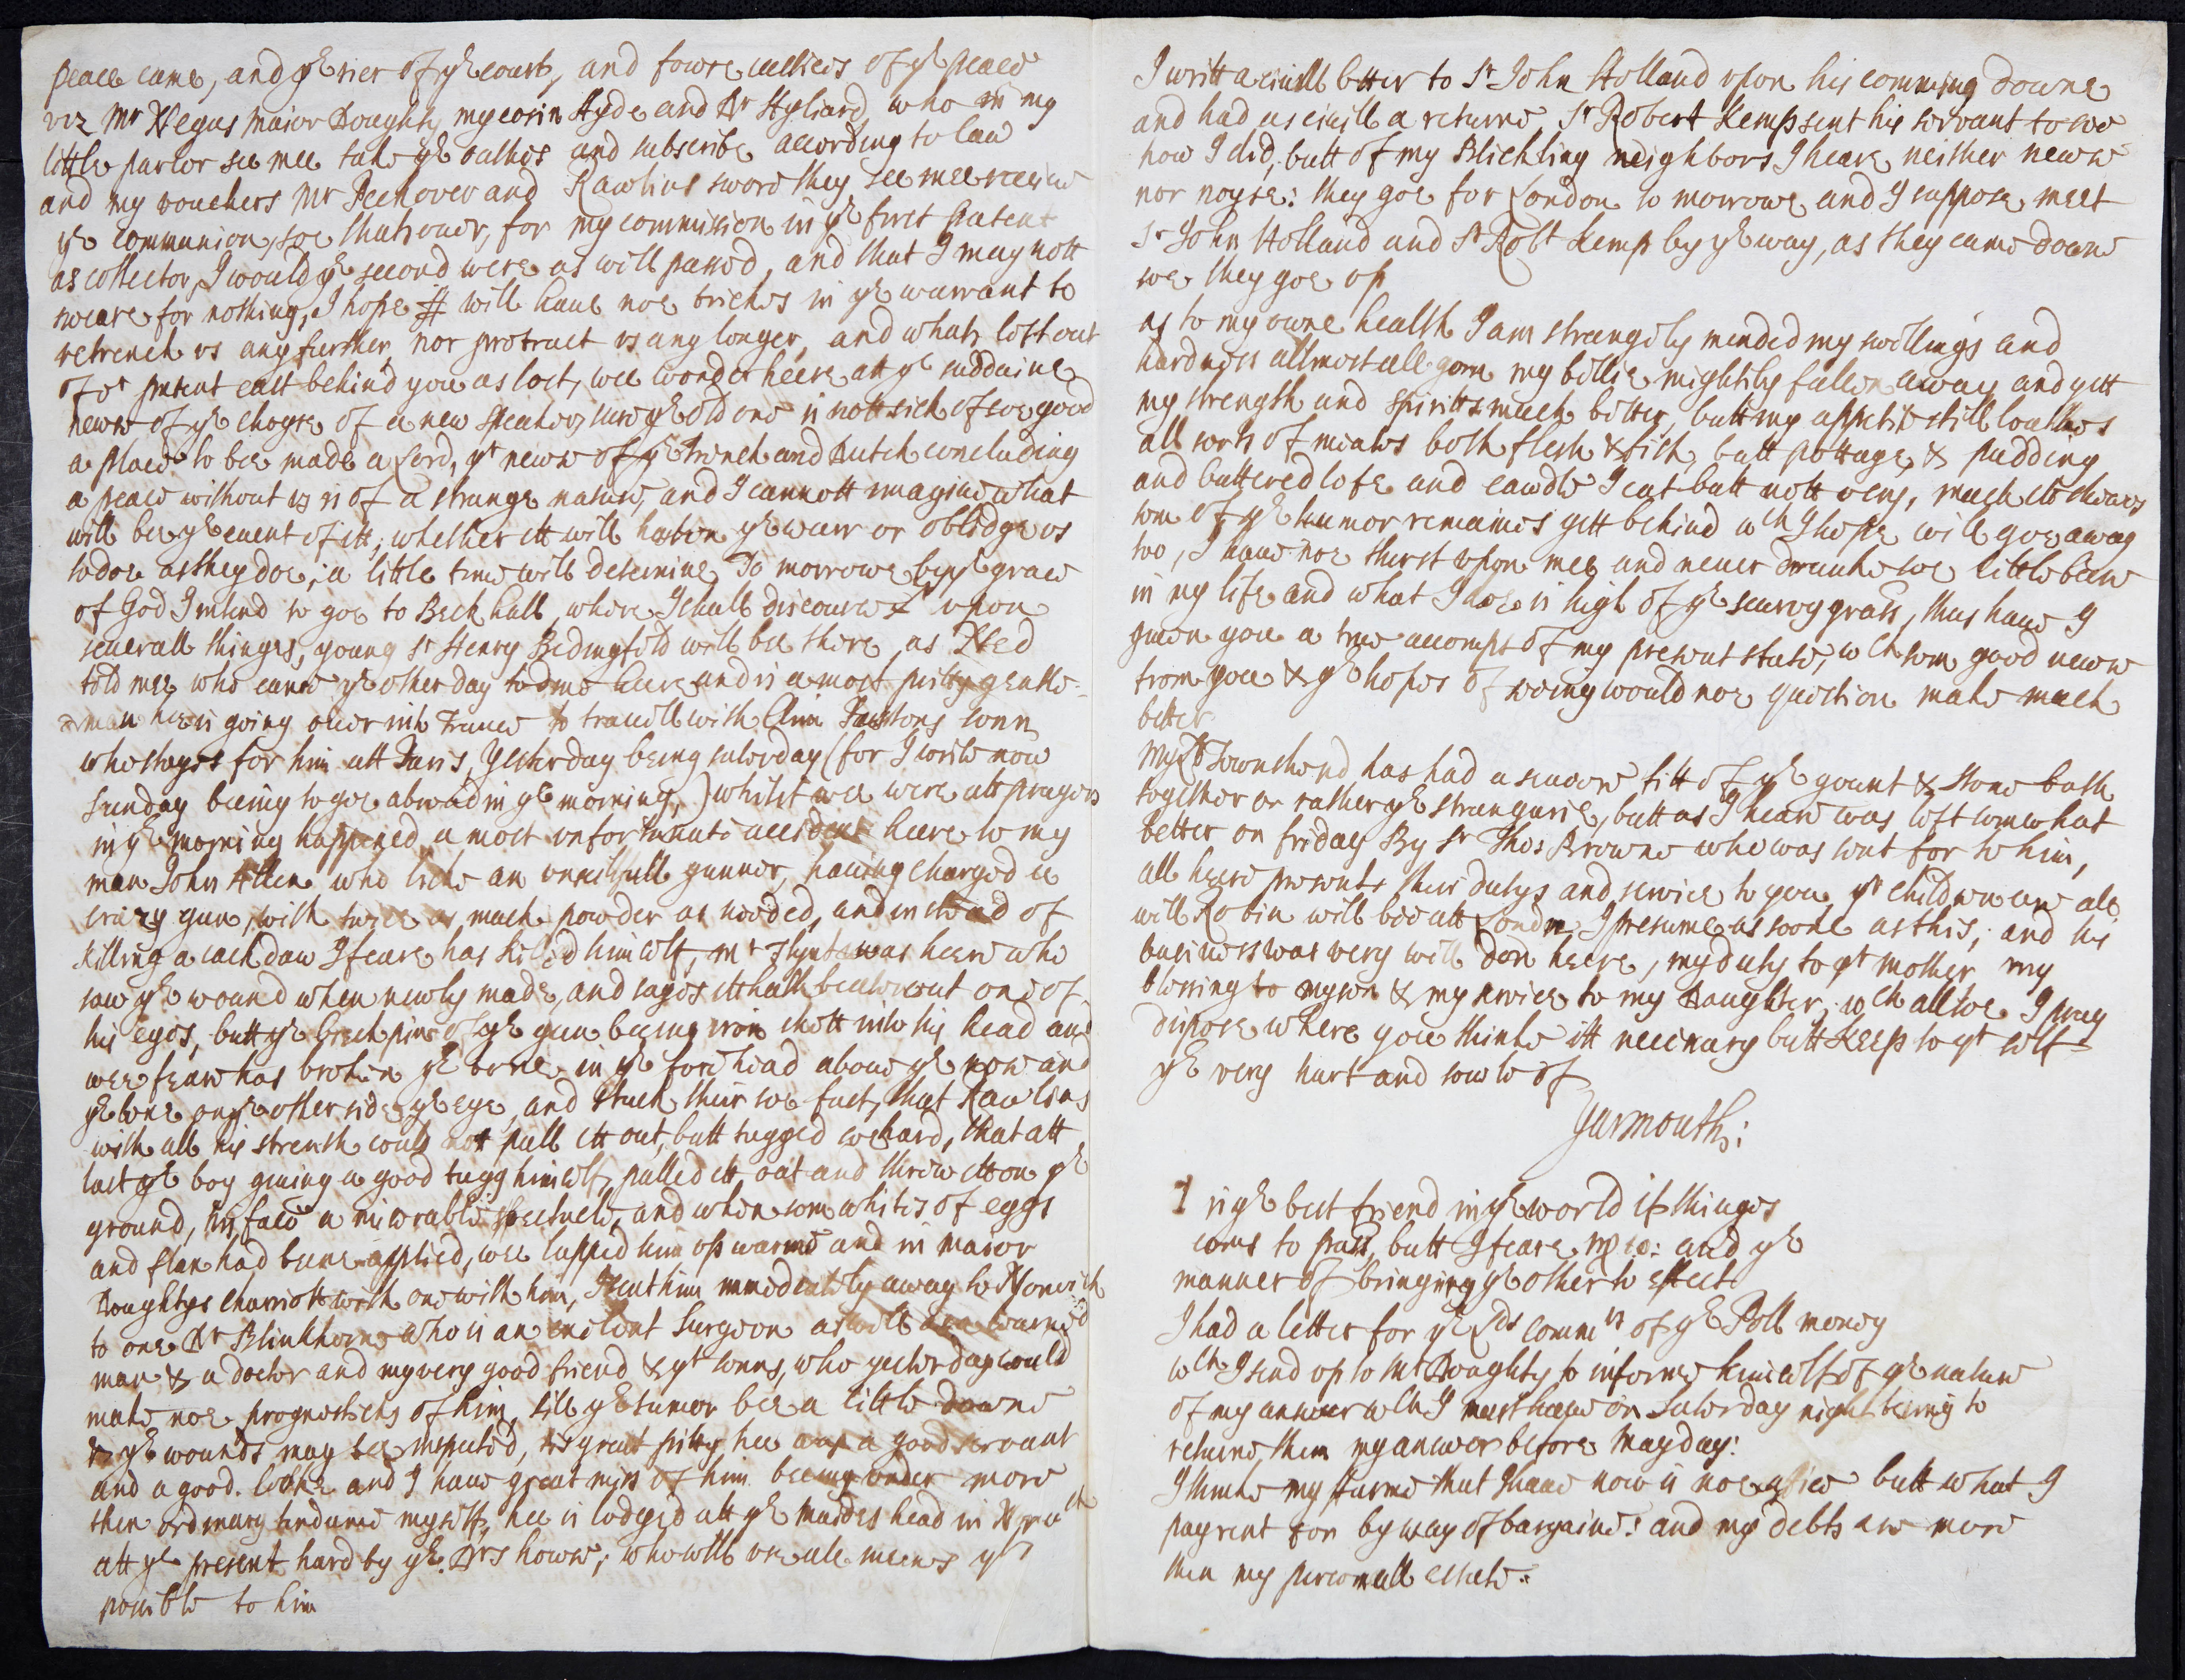 peace came, and ye rier of ye court, and fowre justices of ye peace
viz Mr Negus Maior Doughty my cosin Hyde and Dr Hyliard, who in my
little parlor see mee take ye oathes and subscribe according to law
and my vouchers Mr Peckover and Rawlins swore they see mee receive
ye communion, soe thats over, for my commission in ye first Patent
as collector, I would ye second were as well passed, and that I may nott
sweare for nothing, I hope # will have noe trickes in ye warrant to
retrench us any further, nor protract us any longer, and whats lost out
of or patent cast behind you as lost, wee wonder heere att ye suddaine
newse of ye choyse of a new speaker, sure ye old one is nott sick of soe good
a place to bee made a Lord, yt newse of ye French and Dutch concluding
a peace without us is of a strange nature, and I cannott imagine what
will bee ye event of itt, whether itt will hasten ye warr or oblidge us
to doe as they doe, a little time will determine, To morrowe by ye grace
of God I intend to goe to Beck hall, where I shall discourse upon
severall thinges, young Sr Henry Bedingfeld will bee there, as Ned
told mee who came ye other day to dine heere and is a most pritty gentle-
man hee is going over into France to travell with Clem Pastons sonn
who stayes for him att Paris, Yesterday being saterday (for I write now
Sunday beeing to goe abroad in ye morning,) whilst wee were att prayers
in ye morning happened a most unfortunate accident heere to my
man John Allen who like an unskilfull gunner, having charged a
crazy gun, with twice as much powder as needed, and instead of
killing a jack daw I feare has killed himself, Mr Flynt was heere who
saw ye wound when newly made, and sayes itt hath beate out one of
his eyes, butt ye brich pin of ye gun beeing iron shott into his head and
wee feare has broken ye bone in ye forehead above ye nose and
ye bone on ye other side ye eye, and stuck their soe fast, that Rawlins
with all his strenth could nott pull itt out, butt tugged soe hard, that att
last ye boy giving a good tugg himself, pulled itt out and threw itt on ye
ground, his face a miserable spectacle, and when som whites of eggs
and flax had bene applied, wee lapped him up warme and in Maior
Doughtys charriott with one with him, I sent him immediatly away to Norwich
to one Dr Blinkhorne who is an exelent Surgeon as well as a learned
man & a doctor and my very good friend & yr sonns, who yesterday could
make noe prognosticks of him, till ye tumor bee a little downe
& ye wounds may bee inspected, tis great pitty hee was a good servant
and a good looke and I have great miss of him beeing under more
then ordinary tendance myself, hee is lodged att ye Maides head in Norwch
att ye present hard by ye Drs howse, who will use all meenes yts
possible to him
I writt a civill letter to Sr John Holland upon his comming downe
and had as civill a returne, Sr Robert Kemp sent his servant to see
how I did, butt of my Blickling neighbors I heare neither newse
nor noyse: they goe for London to morrowe and I suppose meet
Sr John Holland and Sr Robt Kemp by ye way, as they came downe
soe they goe up
as to my owne health I am strangely mended my swellings and
hardness allmost all gon my bellie mightily fallen away and yett
my strength and spiritts much better, butt my appetite still loathes
all sorts of meates both flesh & fish, butt pottage, & pudding
and buttered lofe and cawdle I eat butt nott very, much itt shewes
som of ye humor remaines yett behind wch I hope will goe away
too, I have noe thirst upon mee and never drunke soe little beere
in my life and what I doe is high of ye scurvy grass, thus have I
given you a true accompt of my present state, wch som good newse
from you & ye hopes of seeing would noe question make much
better.
My Ld Townshend has had a severe fitt of ye gount & stone both
together or rather ye strangurie, butt as I heare was left somwhat
better on friday By Sr Thos Browne who was sent for to him,
all heere presents their dutys and service to you yr children are all
well Robin will bee att London I presume as soone as this, and his
business was very well don heere, my duty to yr mother, my
blessing to my son & my service to my Daughter, wch all soe I pray
dispose where you thinke itt necessary butt Keep to yr self
ye very hart and sowle of
Yarmouth:
1 is ye best friend in ye world if thinges
coms to pass, butt I feare and ye
manner of bringing ye other to effect
I had a letter for ye Lds commrs of ye Poll money
wch I send up to Mr Doughty to informe himself of ye nature
of my answer wch I must have on Saterday night beeing to
returne them my answer before Mayday:
I thinke my farme that I have now is noe office butt what I
pay rent for by way of bargaine: and my debts are more
then my personall estate.